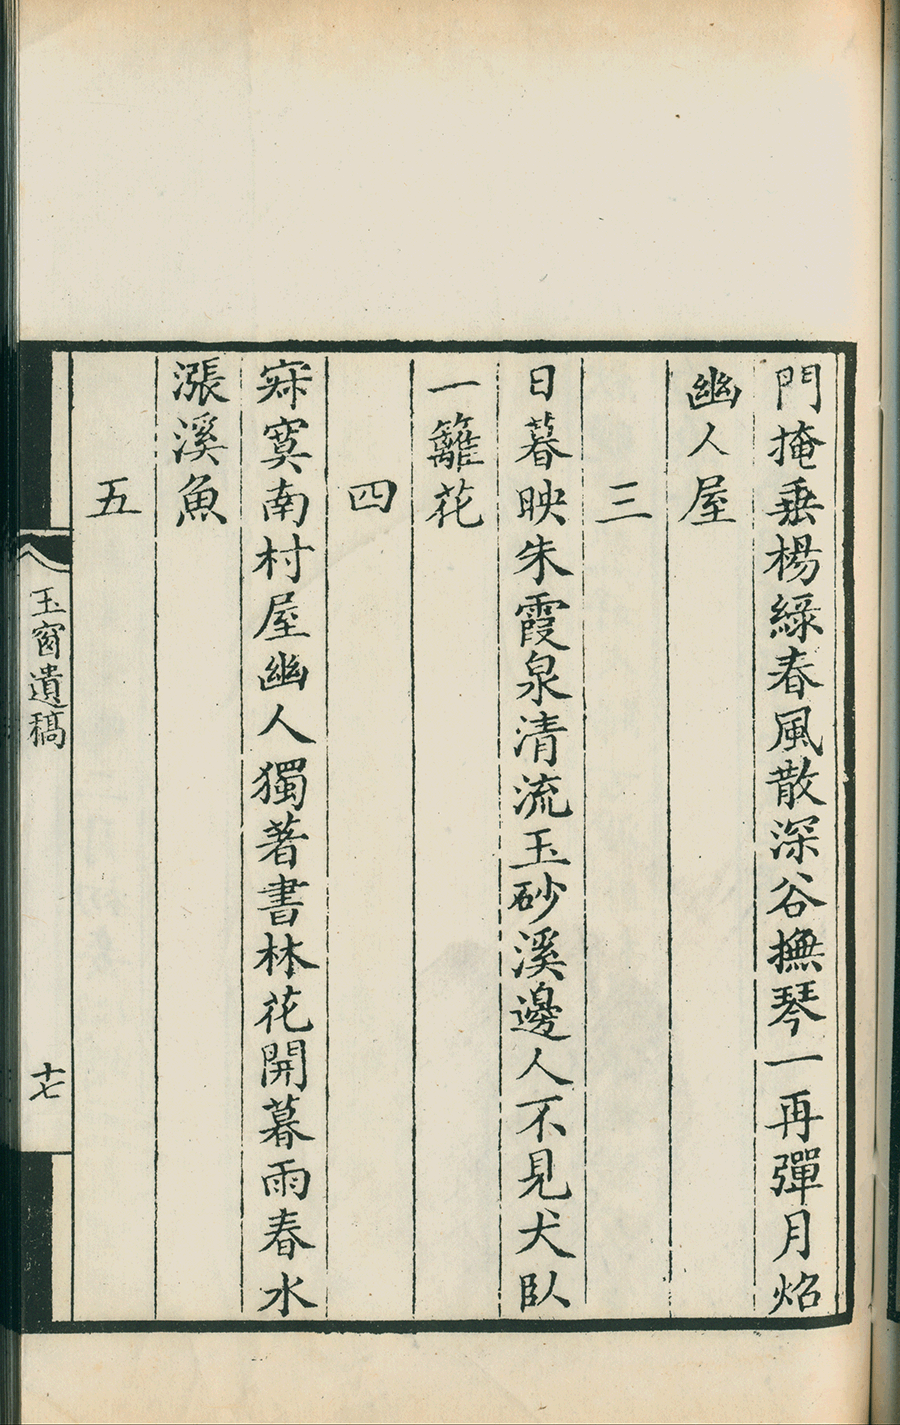 門掩垂楊綠春風散深谷撫琴一再彈月焰
幽人屋
三
日暮映朱霞泉清流玉砂溪邊人不見犬臥
一籬花
四
寂寞南村屋幽人獨著書林花開暮雨春水
漲溪魚
五
玉窗遺稿
十七